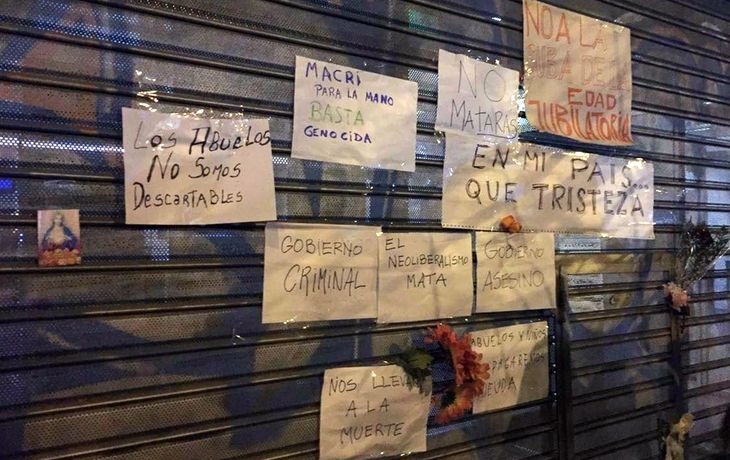 NO A LA
SUBA DE LA
EDAD
JUBILATORIA
MACRI
PARA LA MANO
BASTA
GENOCIDA
NO
MATARAS
LOS ABUELOS
NO SOMOS
DESCARTABLES
EN MI PAIS...
QUE TRISTEZA
GOBIERNO
CRIMINAL
EL
NEOLIBERALISMO
MATA
GOBIERNO
ASESINO
ABUELOS Y NIÑOS
DEUDA
NOS LLEVAN
A LA
MUERTE